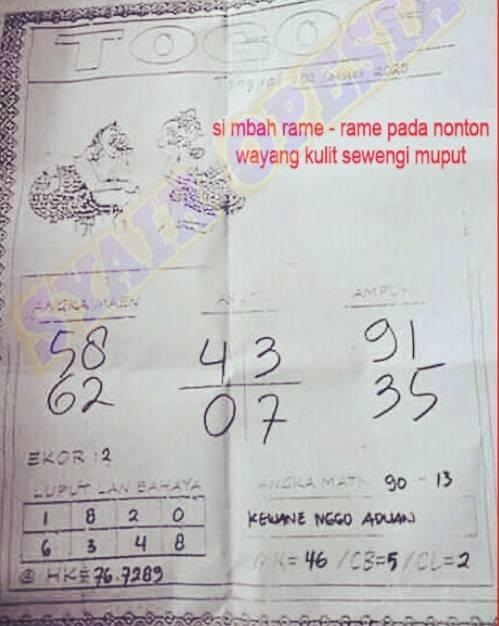 TOGOG
Tanggal : 02 Januari 2020
si mbah rame - rame pada nonton
wayang kulit sewengi muput
SYAIR OPESIA
ANGKA MAEN
AMPUH
58
62
43
07
91
35
EKOR : 2
LUPUT LAN BAHAYA
1 8 2 0
6 3 4 8
HK = 76.7289
ANGKA MATI 90 - 13
KEWANE NGGO ADUAN
= 46 / CB=5 / CL=2